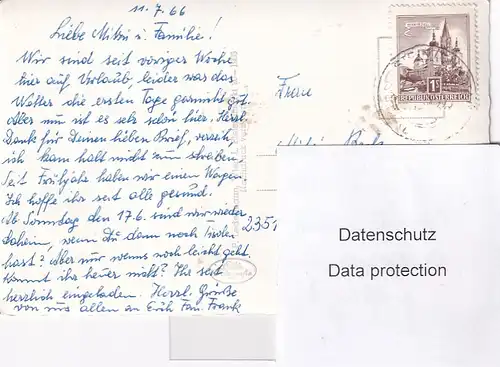 11.7.66
Liebe Mitzi u. Familie!
Wir sind seit voriger Woche
hier auf Urlaub, leider war das
Wetter die ersten Tage garnicht gut.
Aber nun ist es sehr schön hier. Herzl.
Dank für Deinen lieben Brief, verzeih,
ich kam halt nicht zum schreiben.
Seit Frühjahr haben wir einen Wagen.
Ich hoffe ihr seit alle gesund.
Ab Sonntag den 17.6. sind wir wieder
daheim, wenn Du dann noch
hast? Aber nur wenns noch leicht geht.
Kommt ihr heuer nicht? Ihr seit
herzlich eingeladen. Herzl. Grüße
von uns allen an Euch Fam. Frank
REPUBLIK ÖSTERREICH
Frau
2351
Datenschutz
Data protection